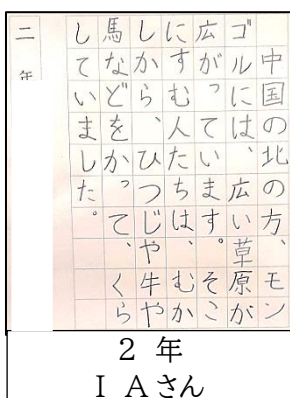 中国の北の方、モン
ゴルには、広い草原が
広がっています。そこ
にすむ人たちは、むか
しから、ひつじや牛や
馬などをかって、くら
していました。
二年
２ 年
Ｉ Ａさん